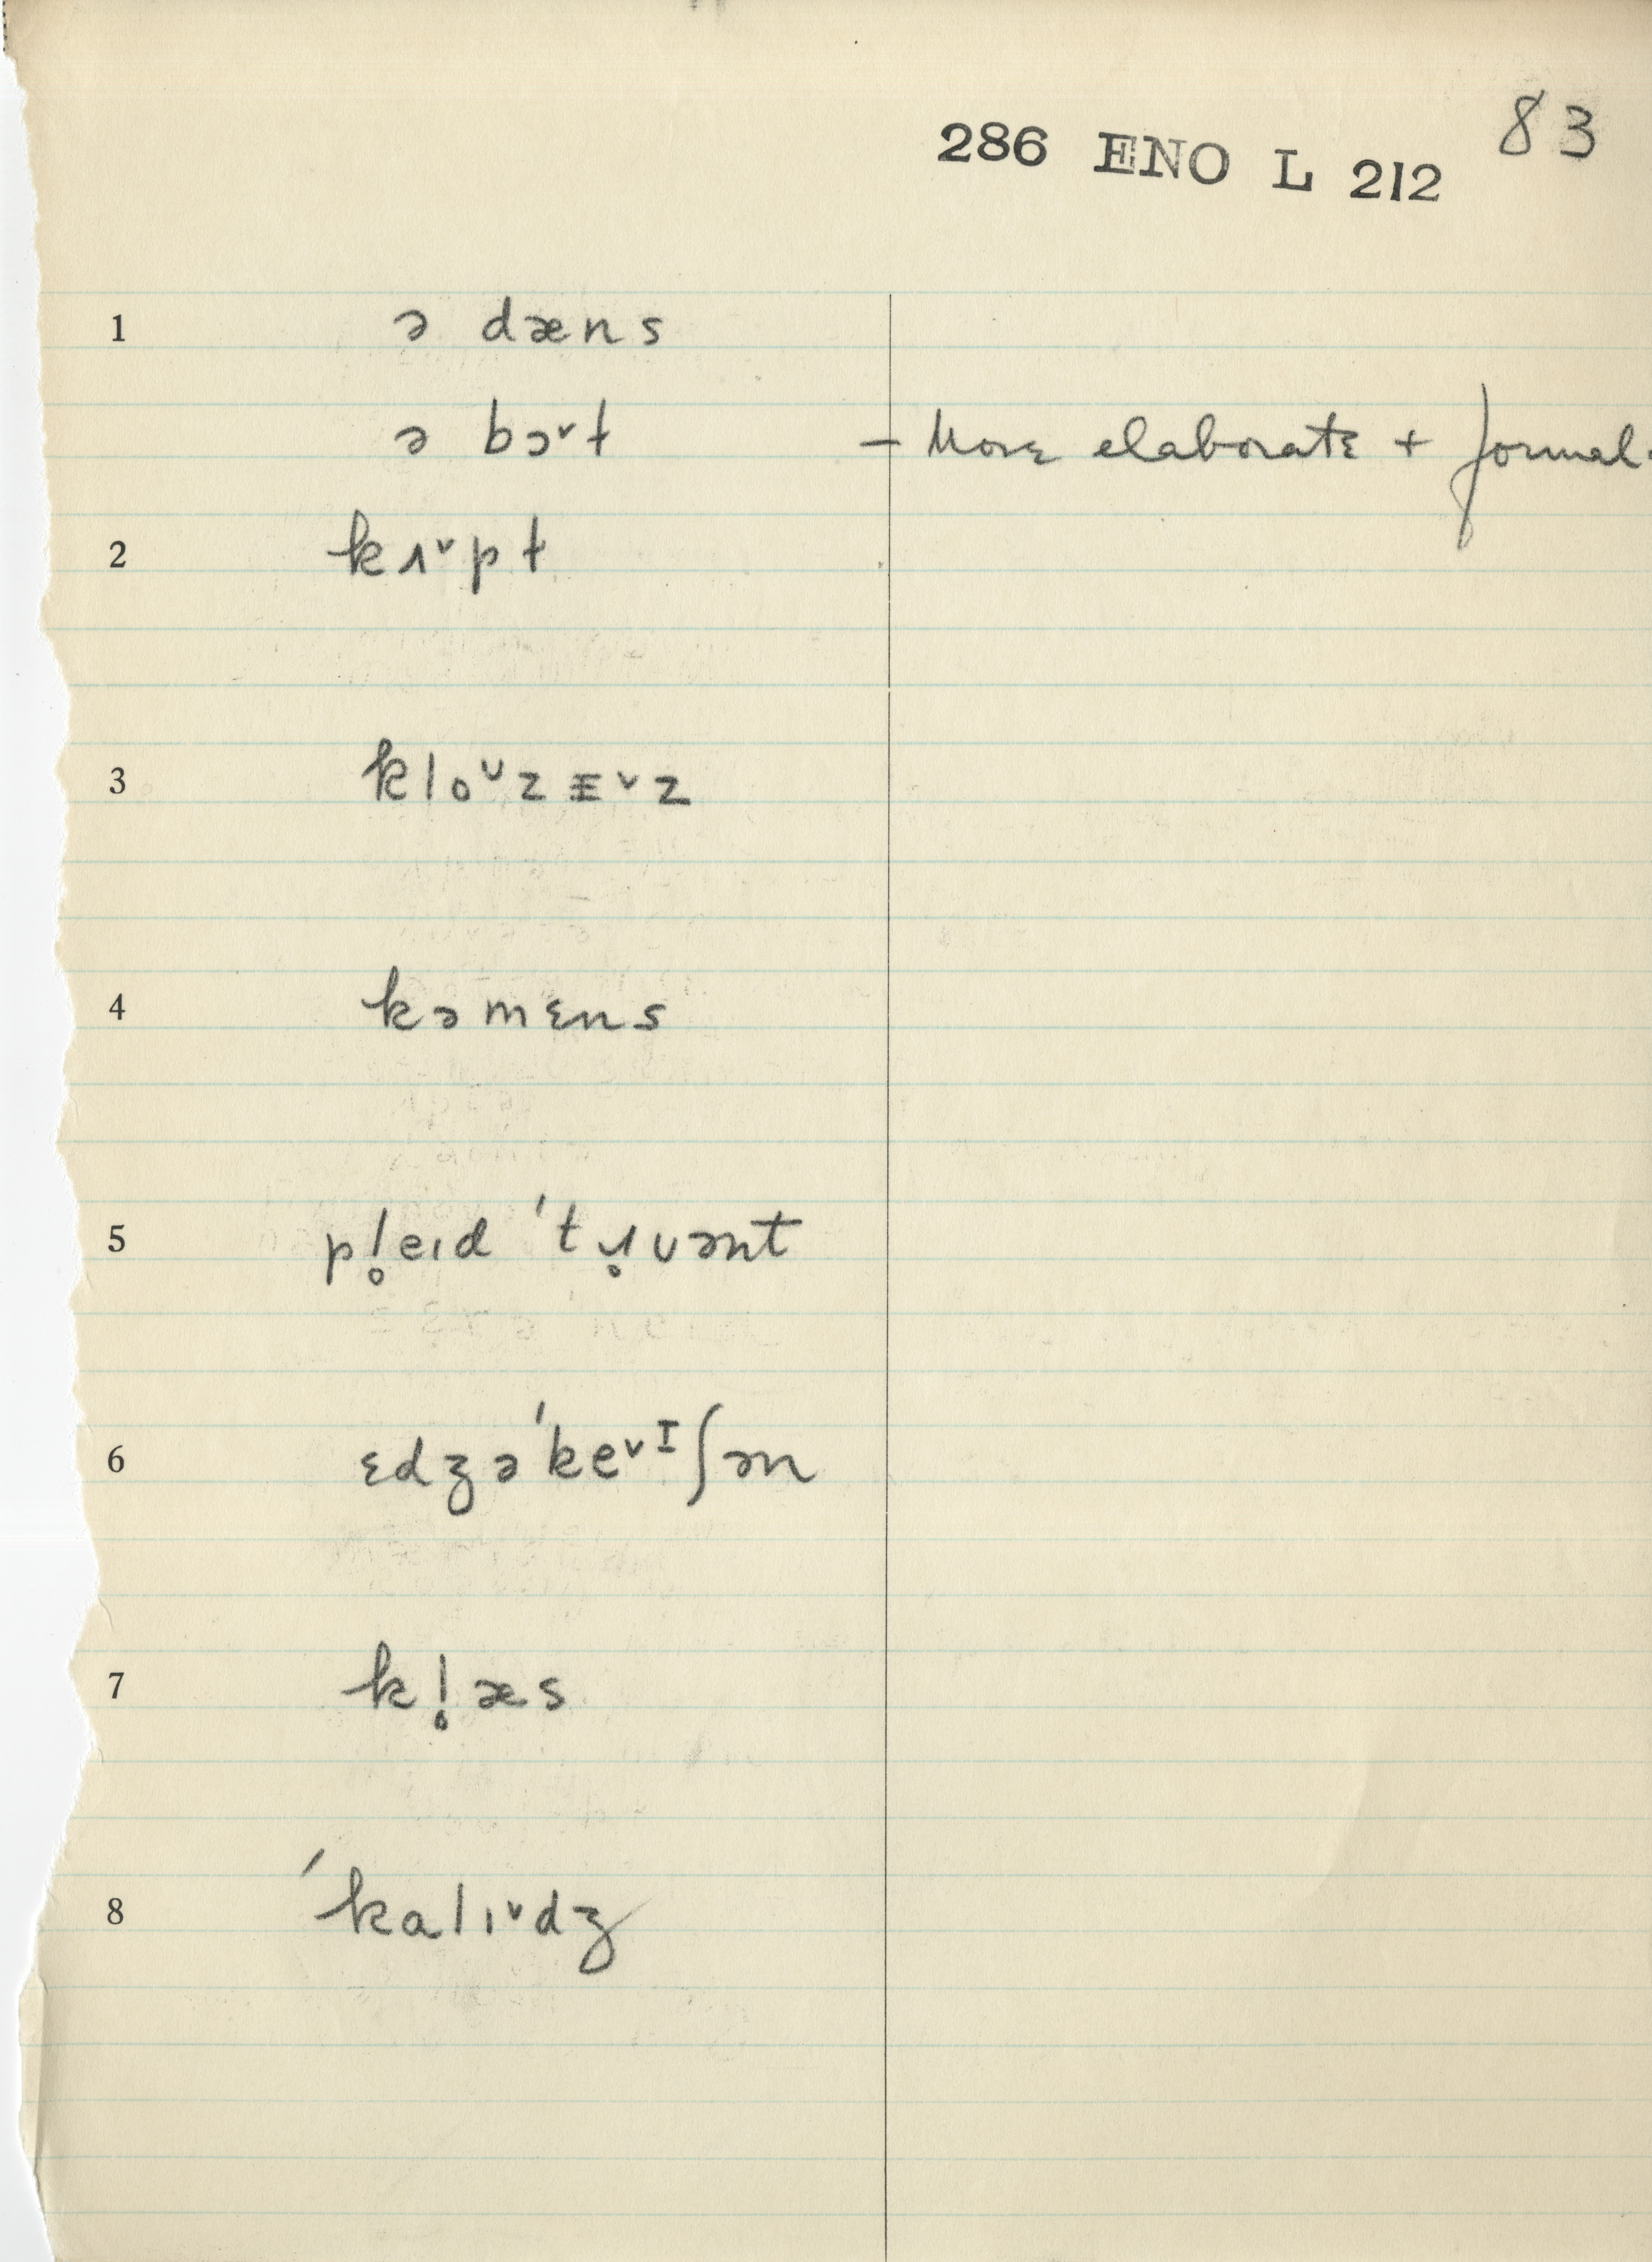 83
286 ENO L 212
1 ə dæns
ə bɔ˅t – More elaborate + formal.
2 kɹ˅pt
3 klo˅zɪ˅z
4 kəmɛns
5 pl̥eɪd ˈtɹ̥uənt
6 ɛdʒəˈke˅ɪʃən
7 kl̥æs
8 ˈkalɪ˅dʒ